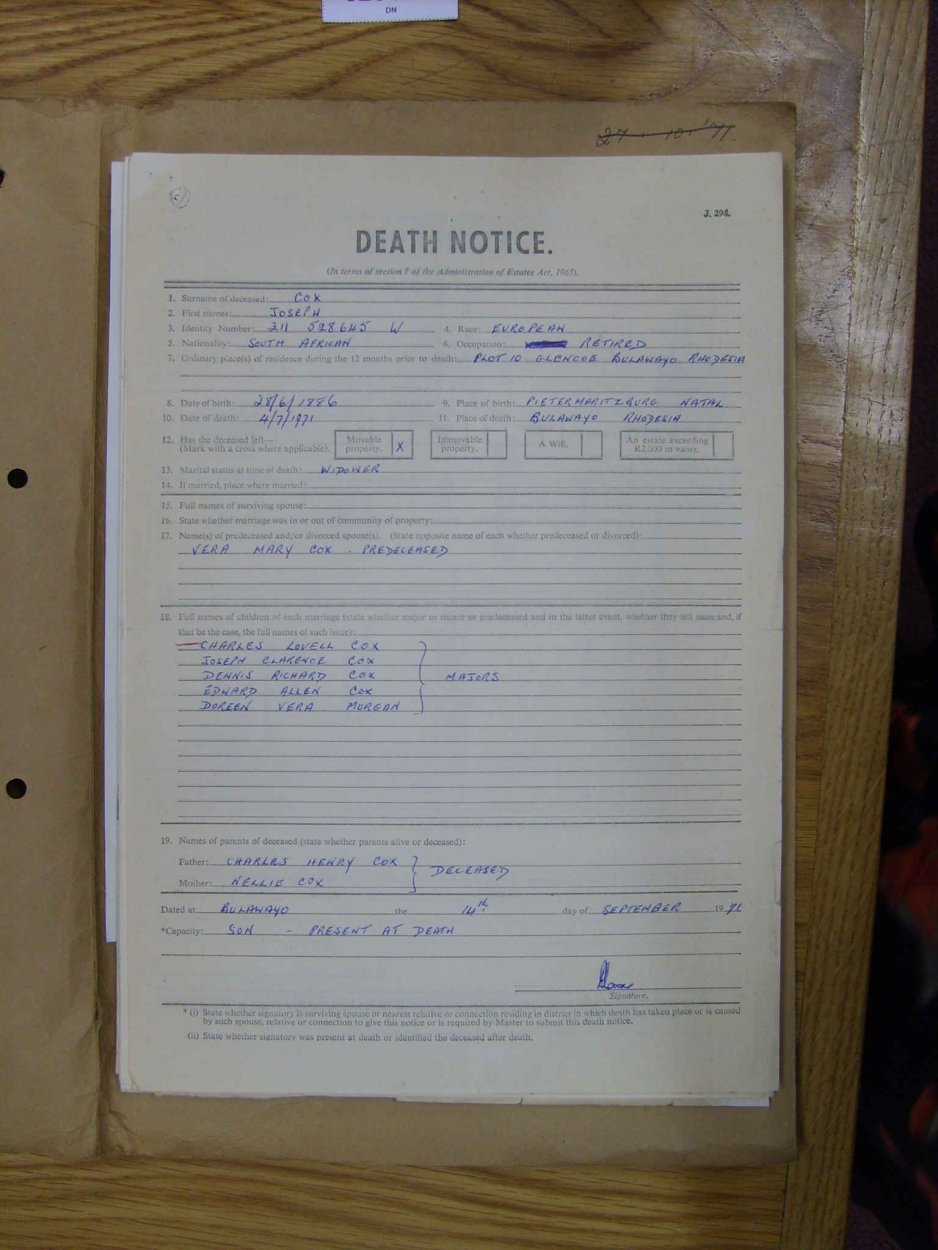 DN
27-10-'71.
J. 294.
DEATH NOTICE.
(In terms of section 7 of the Administration of Estates Act, 1965).
1. Surname of deceased: COX
2. First names: JOSEPH
3. Identity Number: 211 528645 W 4. Race: EUROPEAN
5. Nationality: SOUTH AFRICAN 6. Occupation: RETIRED
7. Ordinary place(s) of residence during the 12 months prior to death: PLOT 10 GLENCOE BULAWAYO RHODESIA
8. Date of birth: 28/6/1886 9. Place of birth: PIETERMARITZBURG NATAL
10. Date of death: 4/7/1971 11. Place of death: BULAWAYO RHODESIA
12. Has the deceased left— (Mark with a cross where applicable). Movable property. X Immovable property. A Will. An estate exceeding R2,000 in value.
13. Marital status at time of death: WIDOWER
14. If married, place where married:
15. Full names of surviving spouse:
16. State whether marriage was in or out of community of property:
17. Name(s) of predeceased and/or divorced spouse(s). (State opposite name of each whether predeceased or divorced):
VERA MARY COX . PREDECEASED
18. Full names of children of each marriage (state whether major or minor or predeceased and in the latter event, whether they left issue and, if
that be the case, the full names of such issue):
CHARLES LOVELL COX
JOSEPH CLARENCE COX
DENNIS RICHARD COX MAJORS
EDWARD ALLEN COX
DOREEN VERA MORGAN
19. Names of parents of deceased (state whether parents alive or deceased):
Father: CHARLES HENRY COX
DECEASED
Mother: NELLIE COX
Dated at BULAWAYO the 14th day of SEPTEMBER 1971
*Capacity: SON - PRESENT AT DEATH
Signature.
* (i) State whether signatory is surviving spouse or nearest relative or connection residing in district in which death has taken place or is caused
by such spouse, relative or connection to give this notice or is required by Master to submit this death notice.
(ii) State whether signatory was present at death or identified the deceased after death.